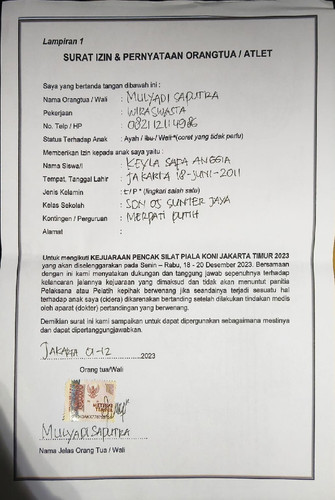 Lampiran 1
SURAT IZIN & PERNYATAAN ORANGTUA / ATLET
Saya yang bertanda tangan dibawah ini :
Nama Orangtua / Wali : MULYADI SAPUTRA
Pekerjaan : WIRASWASTA
No. Telp / HP : 082112114986
Status Terhadap Anak : Ayah / Ibu / Wali *(coret yang tidak perlu)
Memberikan Izin kepada anak saya yaitu :
Nama Siswa/i : KEYLA SAFA ANGGIA
Tempat, Tanggal Lahir : JAKARTA 18-JUNI-2011
Jenis Kelamin : L / P * (lingkari salah satu)
Kelas Sekolah : SDN 05 SUNTER JAYA
Kontingen / Perguruan : MERPATI PUTIH
Alamat :
Untuk mengikuti KEJUARAAN PENCAK SILAT PIALA KONI JAKARTA TIMUR 2023
yang akan diselenggarakan pada Senin – Rabu, 18 - 20 Desember 2023. Bersamaan
dengan ini kami menyatakan dukungan dan tanggung jawab sepenuhnya terhadap
kelancaran jalannya kejuaraan yang dimaksud dan tidak akan menuntut panitia
Pelaksana atau Pelatih kepihak berwenang jika seandainya terjadi sesuatu hal
terhadap anak saya (cidera) dikarenakan bertanding setelah dilakukan tindakan medis
oleh aparat (dokter) pertandingan yang berwenang.
Demikian surat ini kami sampaikan untuk dapat dipergunakan sebagaimana mestinya
dan dapat dipertanggungjawabkan.
JAKARTA 01-12 2023
Orang tua/Wali
MULYADI SAPUTRA
Nama Jelas Orang Tua / Wali